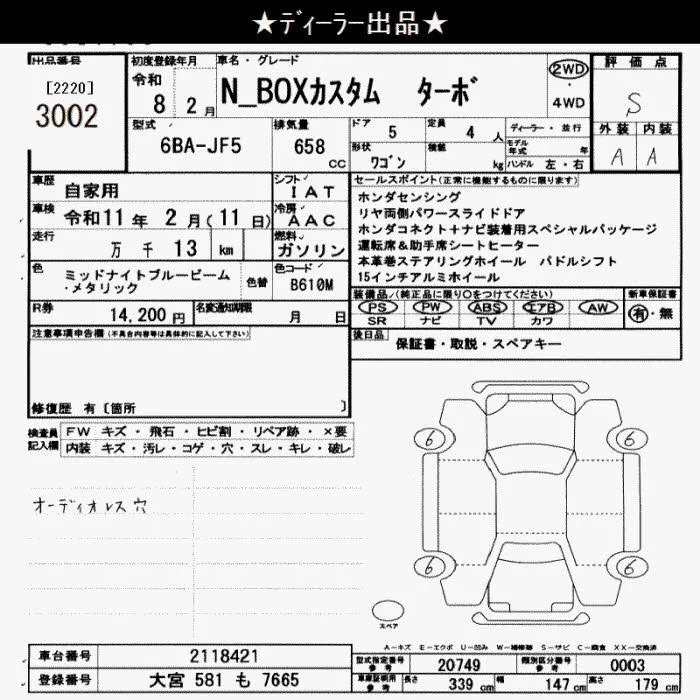 ★ディーラー出品★
出品番号
[2220]
3002
初度登録年月
令和 8 年 2 月
車名・グレード
N_BOXカスタム ターボ
2WD
・
4WD
評価点
S
外装 内装
A A
型式
6BA-JF5
排気量
658 cc
ドア 5
定員 4 人
形状 ワゴン
積載 kg
ディーラー・並行
モデル年式 年
ハンドル 左・右
車歴 自家用
シフト IAT
車検 令和11年 2月(11日)
冷房 AAC
走行 万 千 13 km
燃料 ガソリン
色 ミッドナイトブルービーム・メタリック
色替
色コード B610M
R券 14,200円
名変通知期限 月 日
セールスポイント(正常に機能するものに限ります)
ホンダセンシング
リヤ両側パワースライドドア
ホンダコネクト+ナビ装着用スペシャルパッケージ
運転席&助手席シートヒーター
本革巻ステアリングホイール パドルシフト
15インチアルミホイール
装備品/(純正品に限り○をつけてください)
PS PW ABS エアB AW
SR ナビ TV カワ
新車保証書
有・無
後日品 保証書・取説・スペアキー
注意事項申告欄(不具合内容等は具体的に記入して下さい)
修復歴 有〔箇所 〕
検査員記入欄
FW キズ・飛石・ヒビ割・リペア跡・×要
内装 キズ・汚レ・コゲ・穴・スレ・キレ・破レ
オーディオレス穴
6 6
6 6
スペア
A-キズ E-エクボ U-凹み W-補修跡 S-サビ C-腐食 XX-交換済
車台番号 2118421
登録番号 大宮 581 も 7665
型式指定番号参考 20749
類別区分番号参考 0003
車庫証明用参考 長さ 339 cm 幅 147 cm 高さ 179 cm